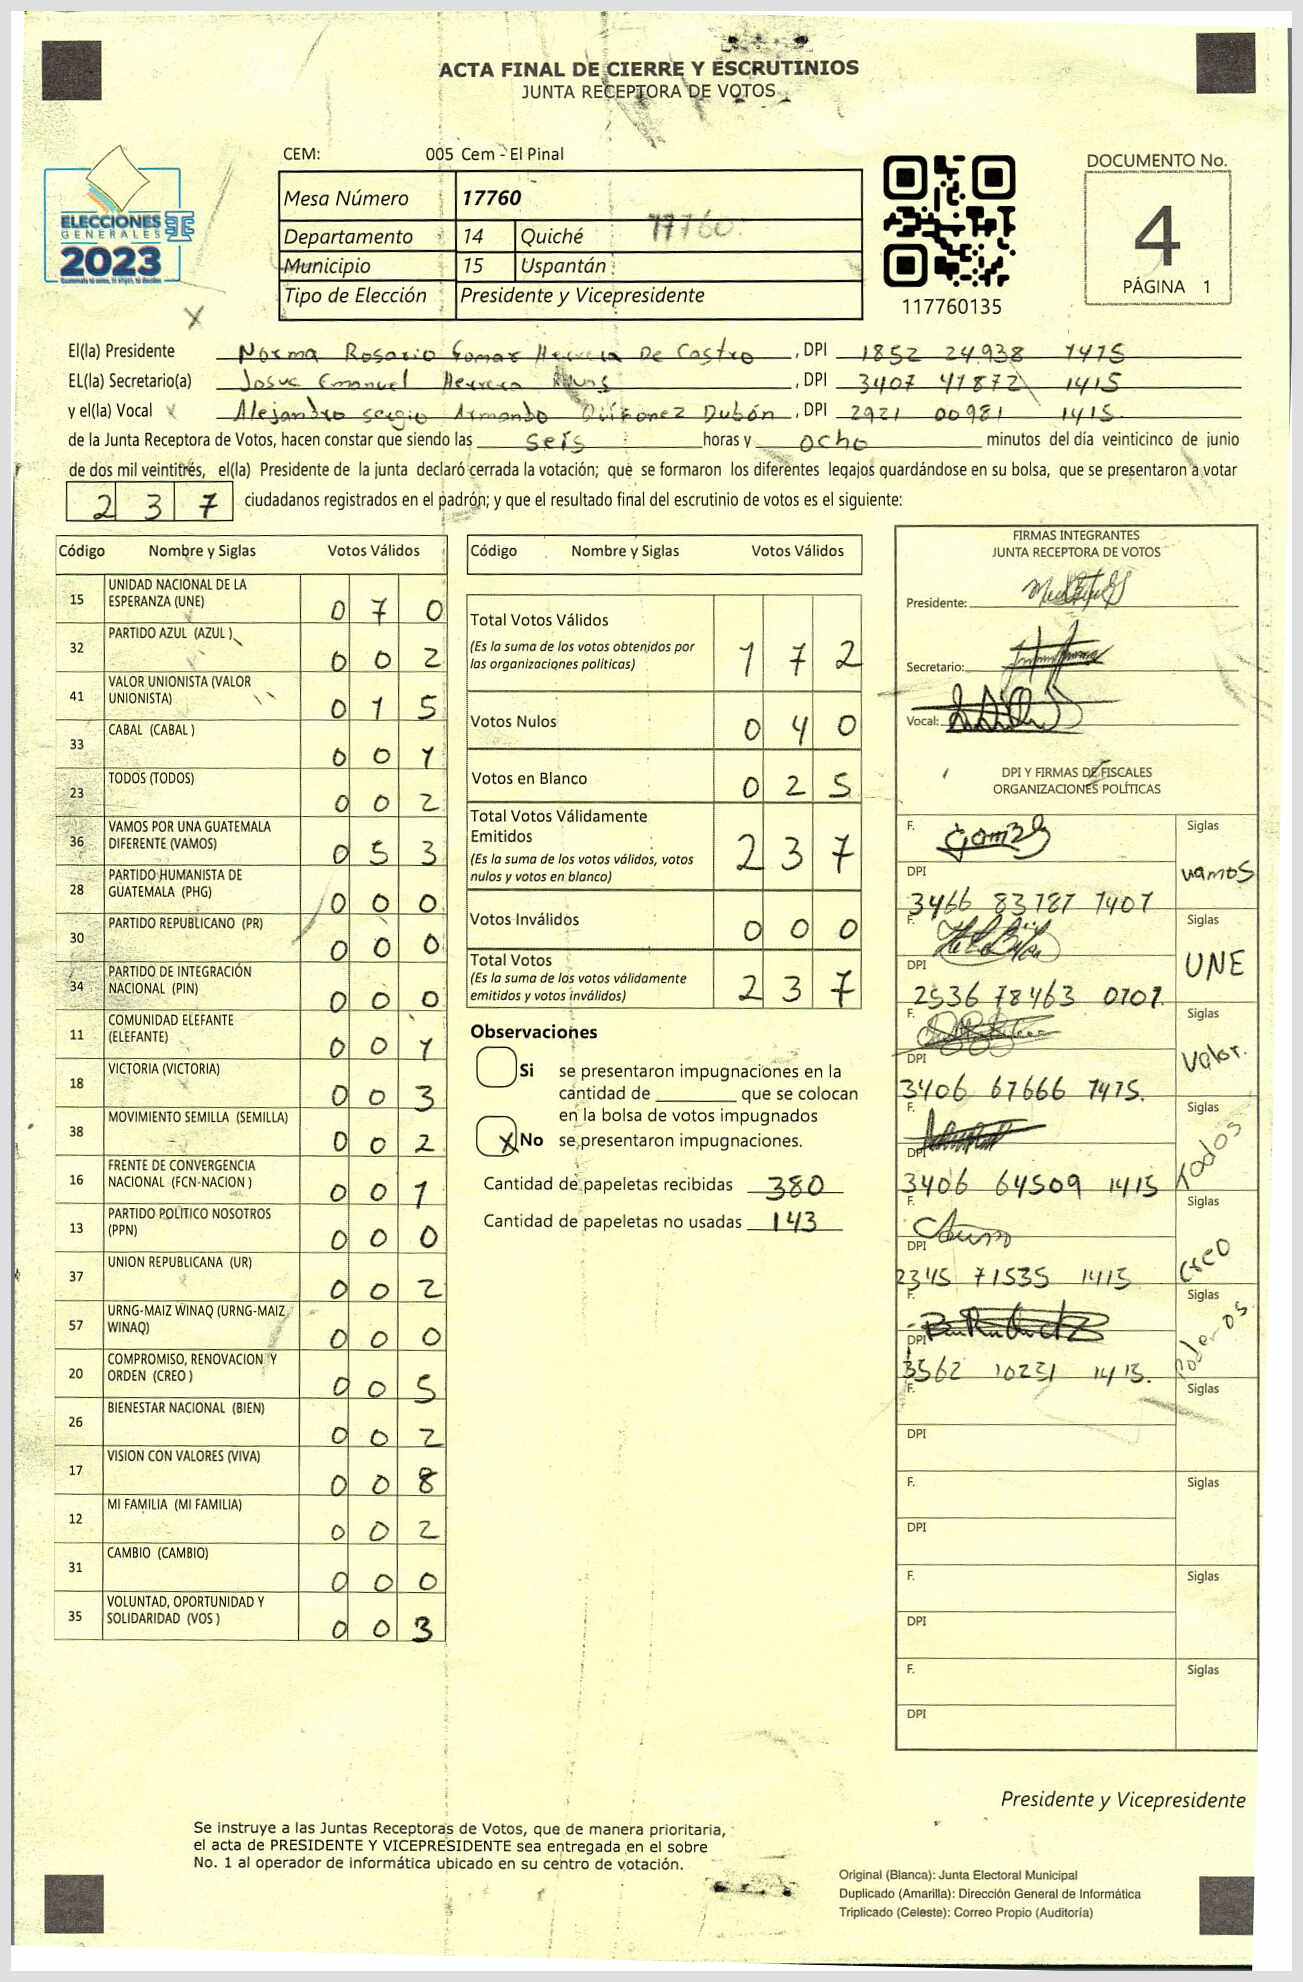 ACTA FINAL DE CIERRE Y ESCRUTINIOS
JUNTA RECEPTORA DE VOTOS
ELECCIONES
GENERALES
2023
CEM: 005 Cem - El Pinal
Mesa Número 17760
Departamento 14 Quiché 17760
Municipio 15 Uspantán
Tipo de Elección Presidente y Vicepresidente
117760135
DOCUMENTO No.
4
PÁGINA 1
El(la) Presidente Norma Rosario Gomar Herrera De Castro, DPI 1852 24938 1415
EL(la) Secretario(a) Josue Emanuel Herrera, DPI 3407 41872 1415
y el(la) Vocal Alejandro Sergio Armando Quiñonez Dubón, DPI 2921 00981 1415
de la Junta Receptora de Votos, hacen constar que siendo las seis horas y ocho minutos del día veinticinco de junio
de dos mil veintitrés, el(la) Presidente de la junta declaró cerrada la votación; que se formaron los diferentes legajos quardándose en su bolsa, que se presentaron a votar
237 ciudadanos registrados en el padrón; y que el resultado final del escrutinio de votos es el siguiente:
Código Nombre y Siglas Votos Válidos
15 UNIDAD NACIONAL DE LA ESPERANZA (UNE) 070
32 PARTIDO AZUL (AZUL ) 002
41 VALOR UNIONISTA (VALOR UNIONISTA) 015
33 CABAL (CABAL ) 001
23 TODOS (TODOS) 002
36 VAMOS POR UNA GUATEMALA DIFERENTE (VAMOS) 053
28 PARTIDO HUMANISTA DE GUATEMALA (PHG) 000
30 PARTIDO REPUBLICANO (PR) 000
34 PARTIDO DE INTEGRACIÓN NACIONAL (PIN) 000
11 COMUNIDAD ELEFANTE (ELEFANTE) 001
18 VICTORIA (VICTORIA) 003
38 MOVIMIENTO SEMILLA (SEMILLA) 002
16 FRENTE DE CONVERGENCIA NACIONAL (FCN-NACION ) 001
13 PARTIDO POLITICO NOSOTROS (PPN) 000
37 UNION REPUBLICANA (UR) 002
57 URNG-MAIZ WINAQ (URNG-MAIZ WINAQ) 000
20 COMPROMISO, RENOVACION Y ORDEN (CREO ) 005
26 BIENESTAR NACIONAL (BIEN) 002
17 VISION CON VALORES (VIVA) 008
12 MI FAMILIA (MI FAMILIA) 002
31 CAMBIO (CAMBIO) 000
35 VOLUNTAD, OPORTUNIDAD Y SOLIDARIDAD (VOS ) 003
Código Nombre y Siglas Votos Válidos
Total Votos Válidos 172
(Es la suma de los votos obtenidos por
las organizaciones políticas)
Votos Nulos 040
Votos en Blanco 025
Total Votos Válidamente
Emitidos 237
(Es la suma de los votos válidos, votos
nulos y votos en blanco)
Votos Inválidos 000
Total Votos 237
(Es la suma de los votos válidamente
emitidos y votos inválidos)
Observaciones
Si se presentaron impugnaciones en la
cantidad de ________ que se colocan
en la bolsa de votos impugnados
X No se presentaron impugnaciones.
Cantidad de papeletas recibidas 380
Cantidad de papeletas no usadas 143
FIRMAS INTEGRANTES
JUNTA RECEPTORA DE VOTOS
Presidente:
Secretario:
Vocal:
DPI Y FIRMAS DE FISCALES
ORGANIZACIONES POLÍTICAS
F. Siglas
DPI vamos
3466 83787 1407
F. Siglas
DPI UNE
2536 78463 0707.
F. Siglas
DPI Valor.
3406 67666 1415.
F. Siglas
DPI todos
3406 64509 1415
F. Siglas
DPI creo
2345 71535 1415
F. Siglas
DPI Poderos
3562 10231 1415.
F. Siglas
DPI
F. Siglas
DPI
F. Siglas
DPI
F. Siglas
DPI
Presidente y Vicepresidente
Se instruye a las Juntas Receptoras de Votos, que de manera prioritaria,
el acta de PRESIDENTE Y VICEPRESIDENTE sea entregada en el sobre
No. 1 al operador de informática ubicado en su centro de votación.
Original (Blanca): Junta Electoral Municipal
Duplicado (Amarilla): Dirección General de Informática
Triplicado (Celeste): Correo Propio (Auditoría)